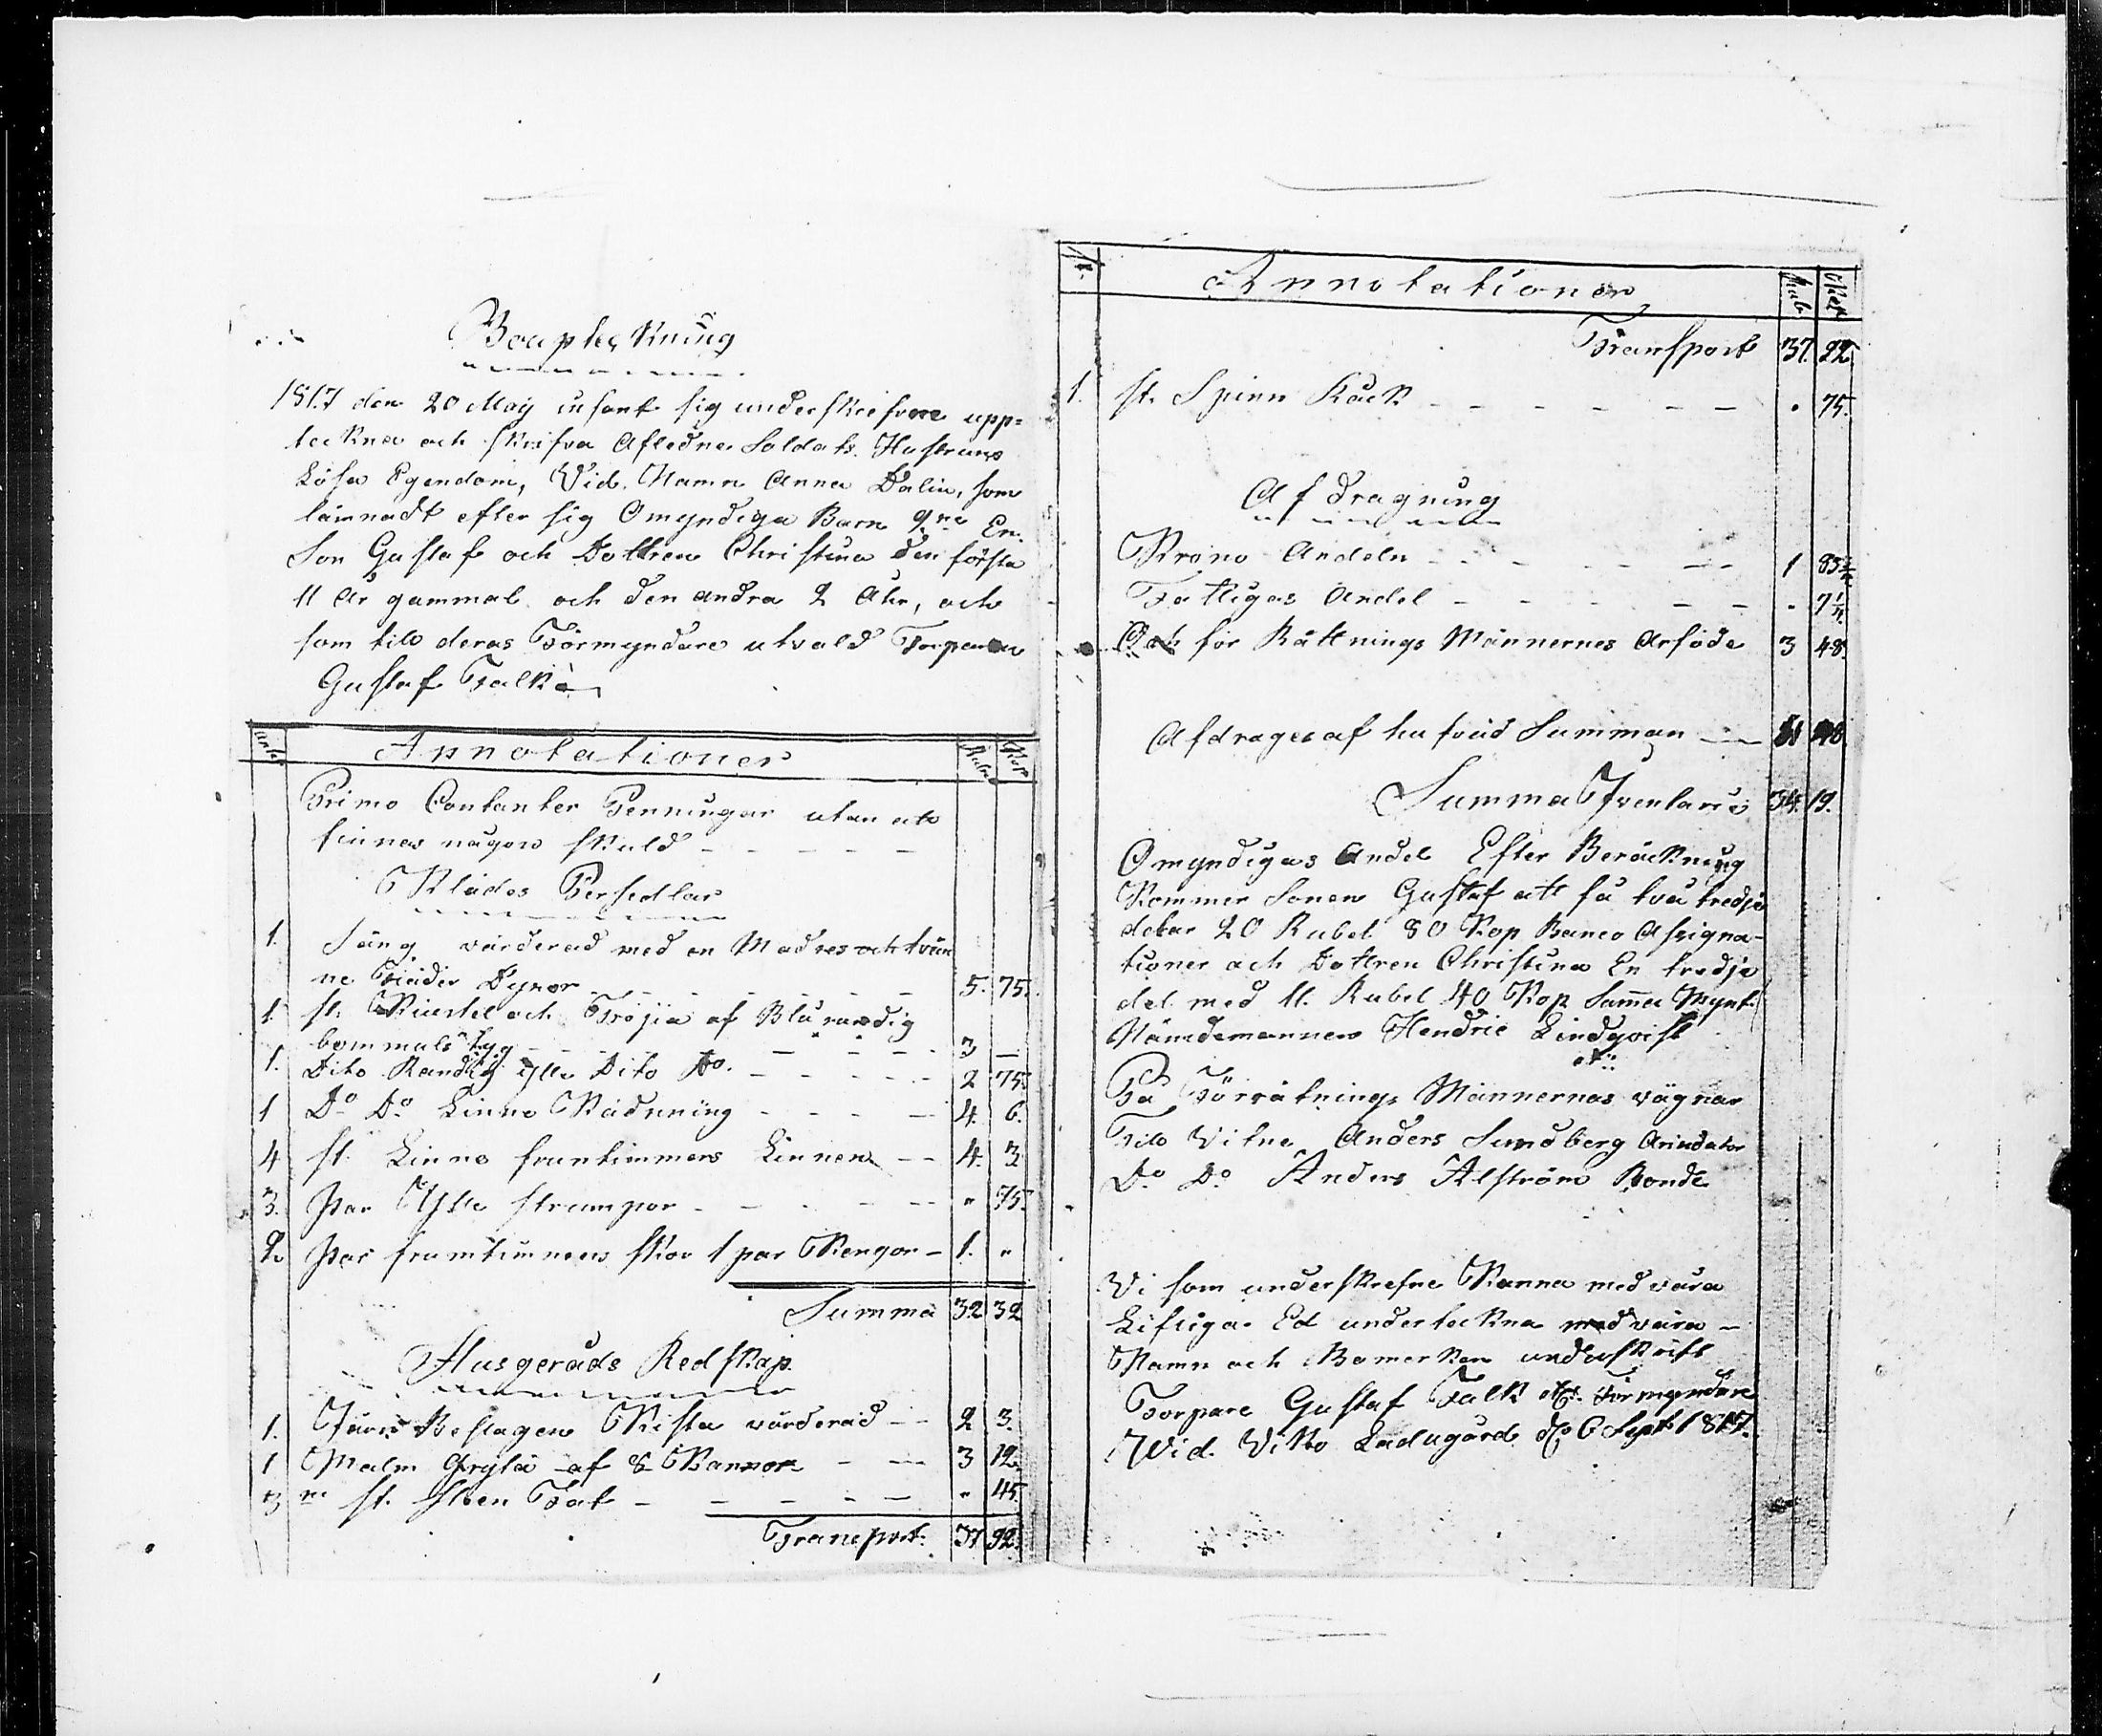 Bouptekning
1817 den 20 May infant sig underskrefvne upp=
teckna och skrifva Afledne Soldats Hustruns
Lösa Egendom, Vid Namn Anna Dalin, som
lämnadt efter sig Omyndiga Barn 2ne En
Son Gustaf och Dottren Christina den första
11 År gammal och den andra 2 Åhr, och
som till deras Förmyndare utvald Torparen
Gustaf Falk
Annotationer Rub Kop
Primo Contanter Penningar utan att
finnas någon skuld
Klädes Persedlar
1. Säng värderad med en Madres och tvän
ne Dynor 5. 75.
1. st. Kiortel och Tröjia af Blå randig
bommuls tyg 3 —
1. Dito Randig ylle Dito Do. 2 75.
1 Do Do Linne Klädning 4. 6.
4 st. Linne fruntimmers Linnen 4. 3
3. par Ylle strumpor " 75.
2. par fruntimmers skor 1 par Kengor 1. "
Summa 32 32
Husgeråds Redskap
1. Järn Beslagen Kista värderad 2 3.
1 Malm Gryta af 8 Kannor 3 12.
3 ne st. Sten Fat " 45.
Transport 37 92.
Annotationer Rub Kop
Transport 37. 92.
1. st. Spinn Råck . 75.
Afdragning
Krono Andeln 1 83
Fattigas Andel . 7
Och för Rättnings Männernes Arfode 3 48.
Afdrages af hufvud Summan
Summa Iventarii 34. 19.
Omyndigas Andel Efter Beräckning
Kommer Sonen Gustaf att få två tredje
delar 20 Rubel 80 Kop Banco Assigna-
tioner och Dottren Christina En tredje
del med 11. Rubel 40 Kop Samma Mynt.
Nämdemannen Hendric Lindqvist
På Förrätnings Männernas vägnar
Till Vitne Anders Sundberg Arindator
Do Do Anders Alström Bonde
Vi som underskrefne Kanna med våra
Lifliga Ed underteckna med våra -
Namn och Bomerken underskrift
Torpare Gustaf Falk Förmyndare
Wid Ladugård d. 6 Sept 1817.